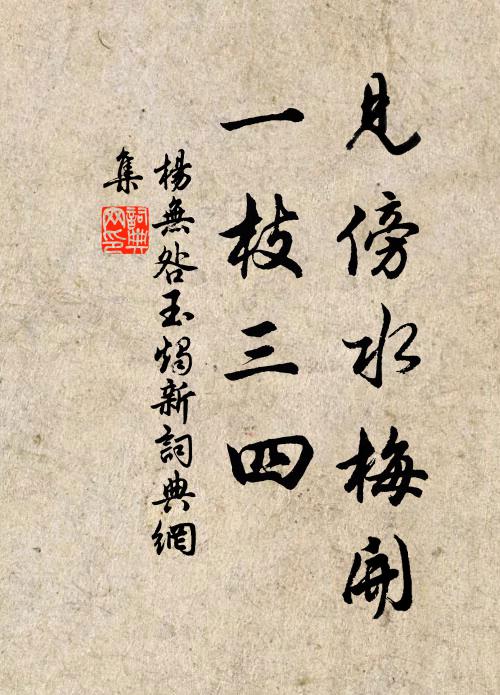 見傍水梅開
一枝三四
楊無咎玉燭新詞典網
集
詞典
网印